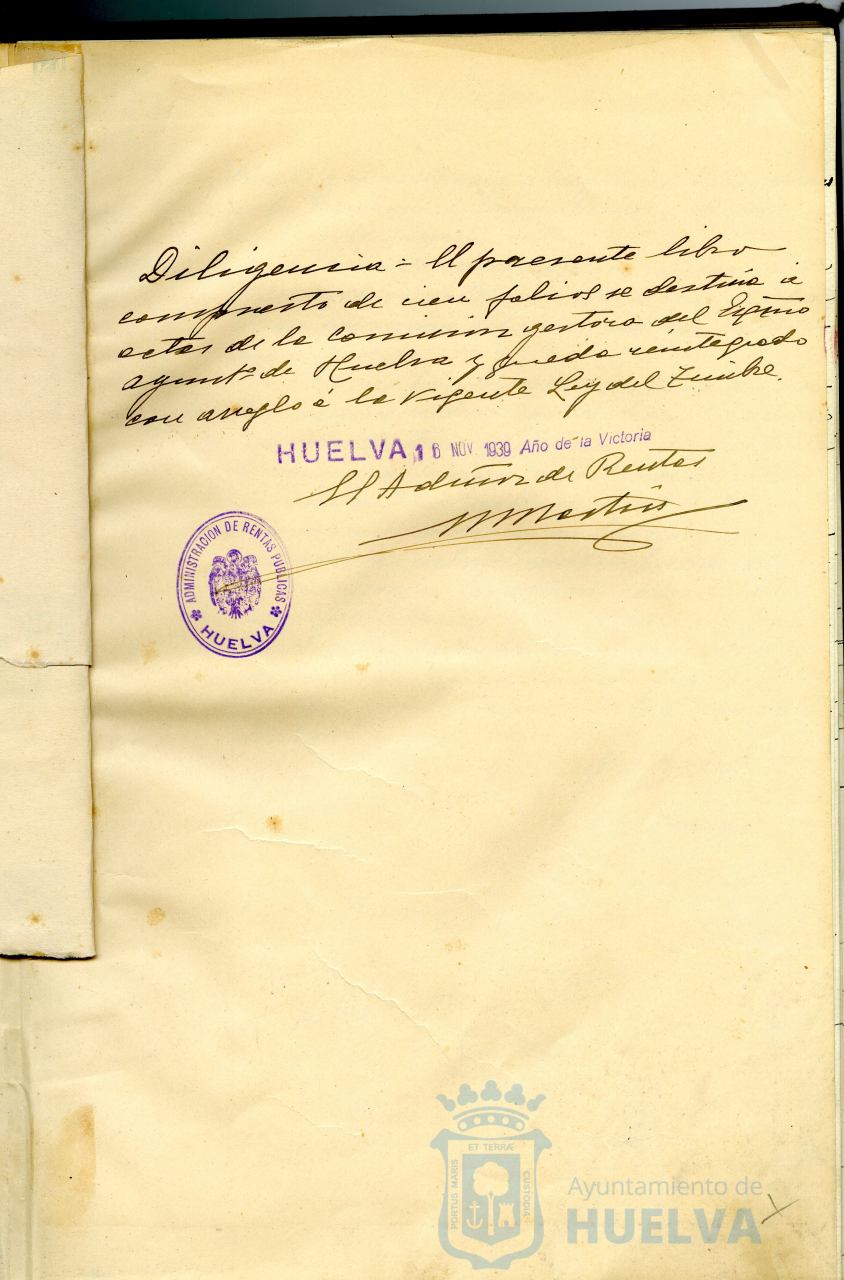 Diligencia = El presente libro
compuesto de cien folios se destina á
actas de la Comisión gestora del Exmo
ayuntº de Huelva y queda reintegrado
con arreglo á la vigente Ley del Timbre.
HUELVA, 16 NOV. 1939 Año de la Victoria
El Admor de Rentas
M Martin
ADMINISTRACION DE RENTAS PUBLICAS
HUELVA
ET TERRÆ
PORTUS MARIS
CUSTODIA
Ayuntamiento de
HUELVA